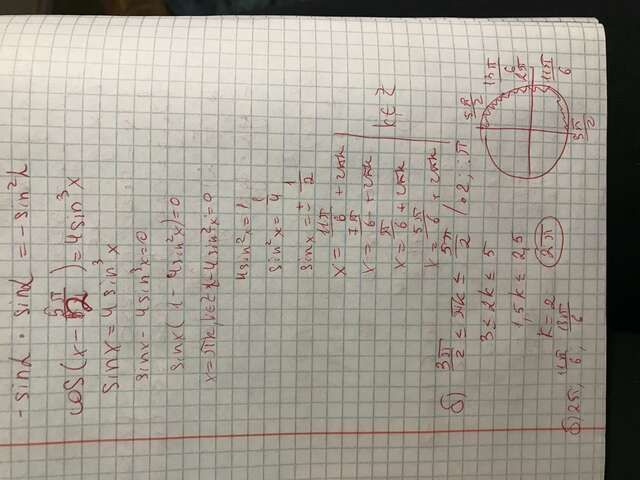 -sinα · sinα = -sin²α
cos(x - 5π/2) = 4sin³x
sinx = 4sin³x
sinx - 4sin³x = 0
sinx(1 - 4sin²x) = 0
x = πk, k∈Z 1 - 4sin²x = 0
4sin²x = 1
sin²x = 1/4
sinx = ± 1/2
x = 11π/6 + 2πk
x = 7π/6 + 2πk
x = π/6 + 2πk
x = 5π/6 + 2πk
k∈Z
б) 3π/2 ≤ πk ≤ 5π/2 /·2 :π
3 ≤ 2k ≤ 5
1,5 k ≤ 2,5
k = 2 2π
б) 2π; 11π/6, 13π/6
5π/2 13π/6 2π 11π/6